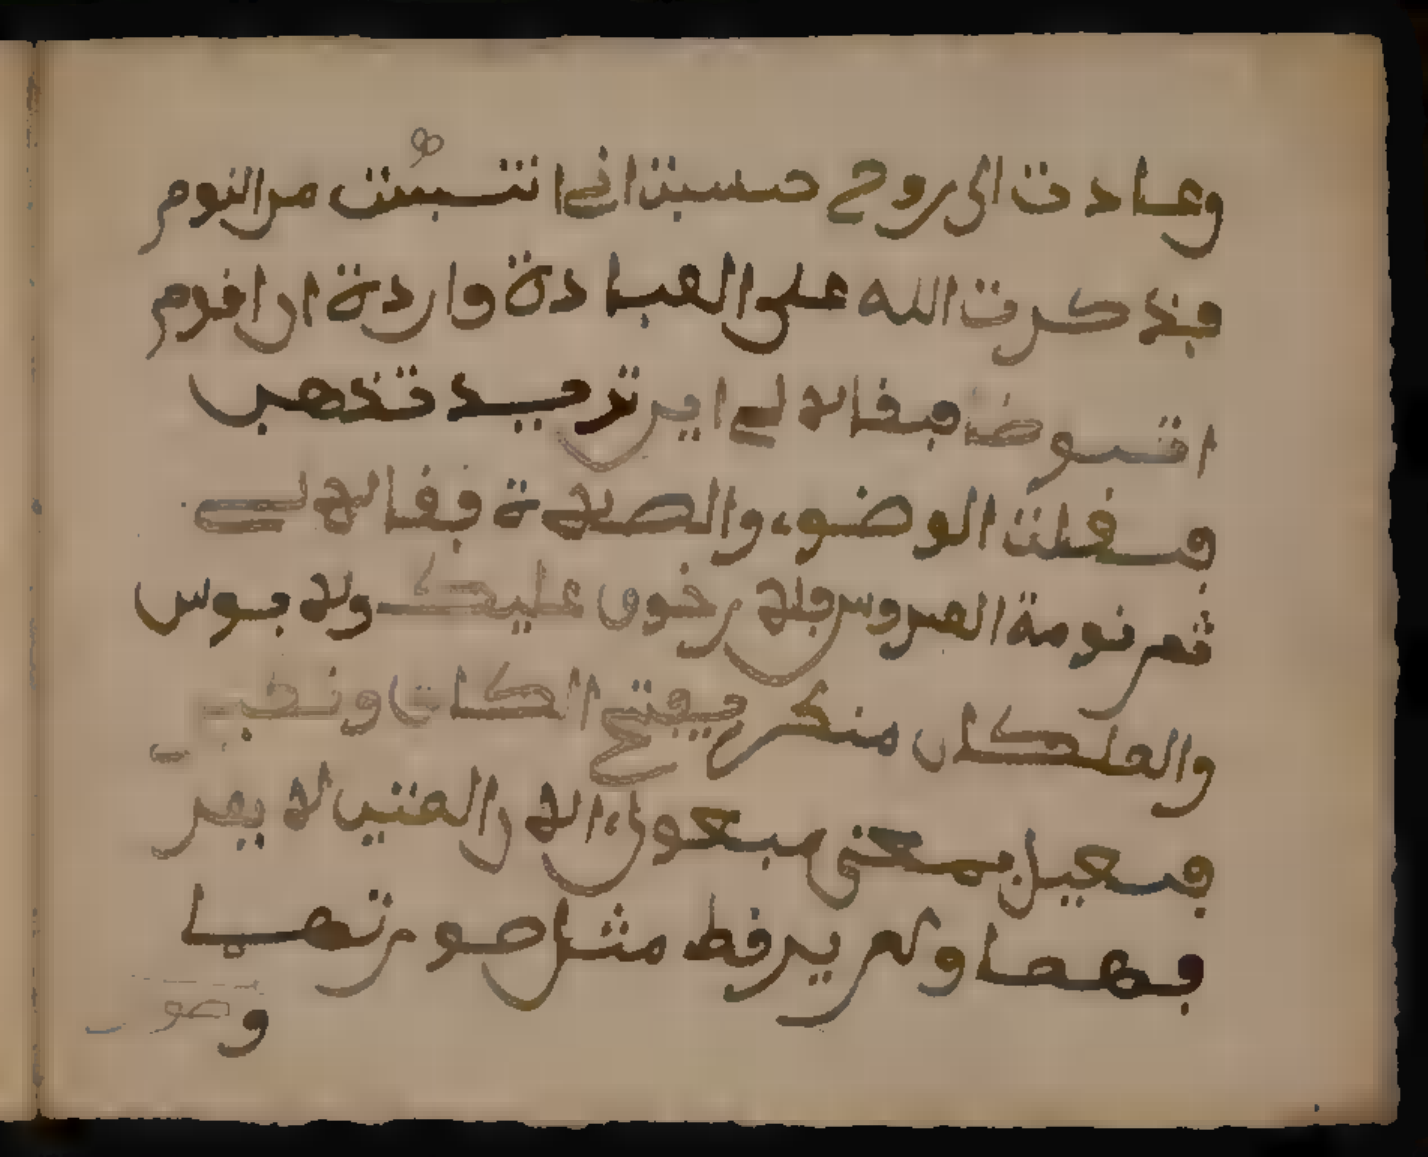 وعادت الى روحي حسبت اني انتبهت من النوم
فذكرت الله على العبادة وارادة ان اقوم
اتوضا فقالا لي اين تريد تذهب
فقلت الوضوء والصلاة فقالا لي
ثم نومة العروس فلا خوف عليك ولا بوس
والملكان منكر بفتح الكاف ونكير
فعيل بمعنى مفعول الا ان الميت لا يعر
فهما ولم ير قط مثل صورتهما
وصور